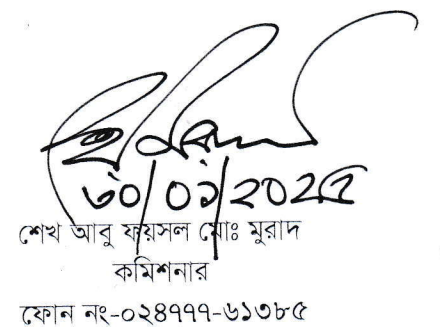 ৩০/০১/২০২৫
শেখ আবু ফয়সল মোঃ মুরাদ
কমিশনার
ফোন নং-০২৪৭৭৭-৬১৩৮৫